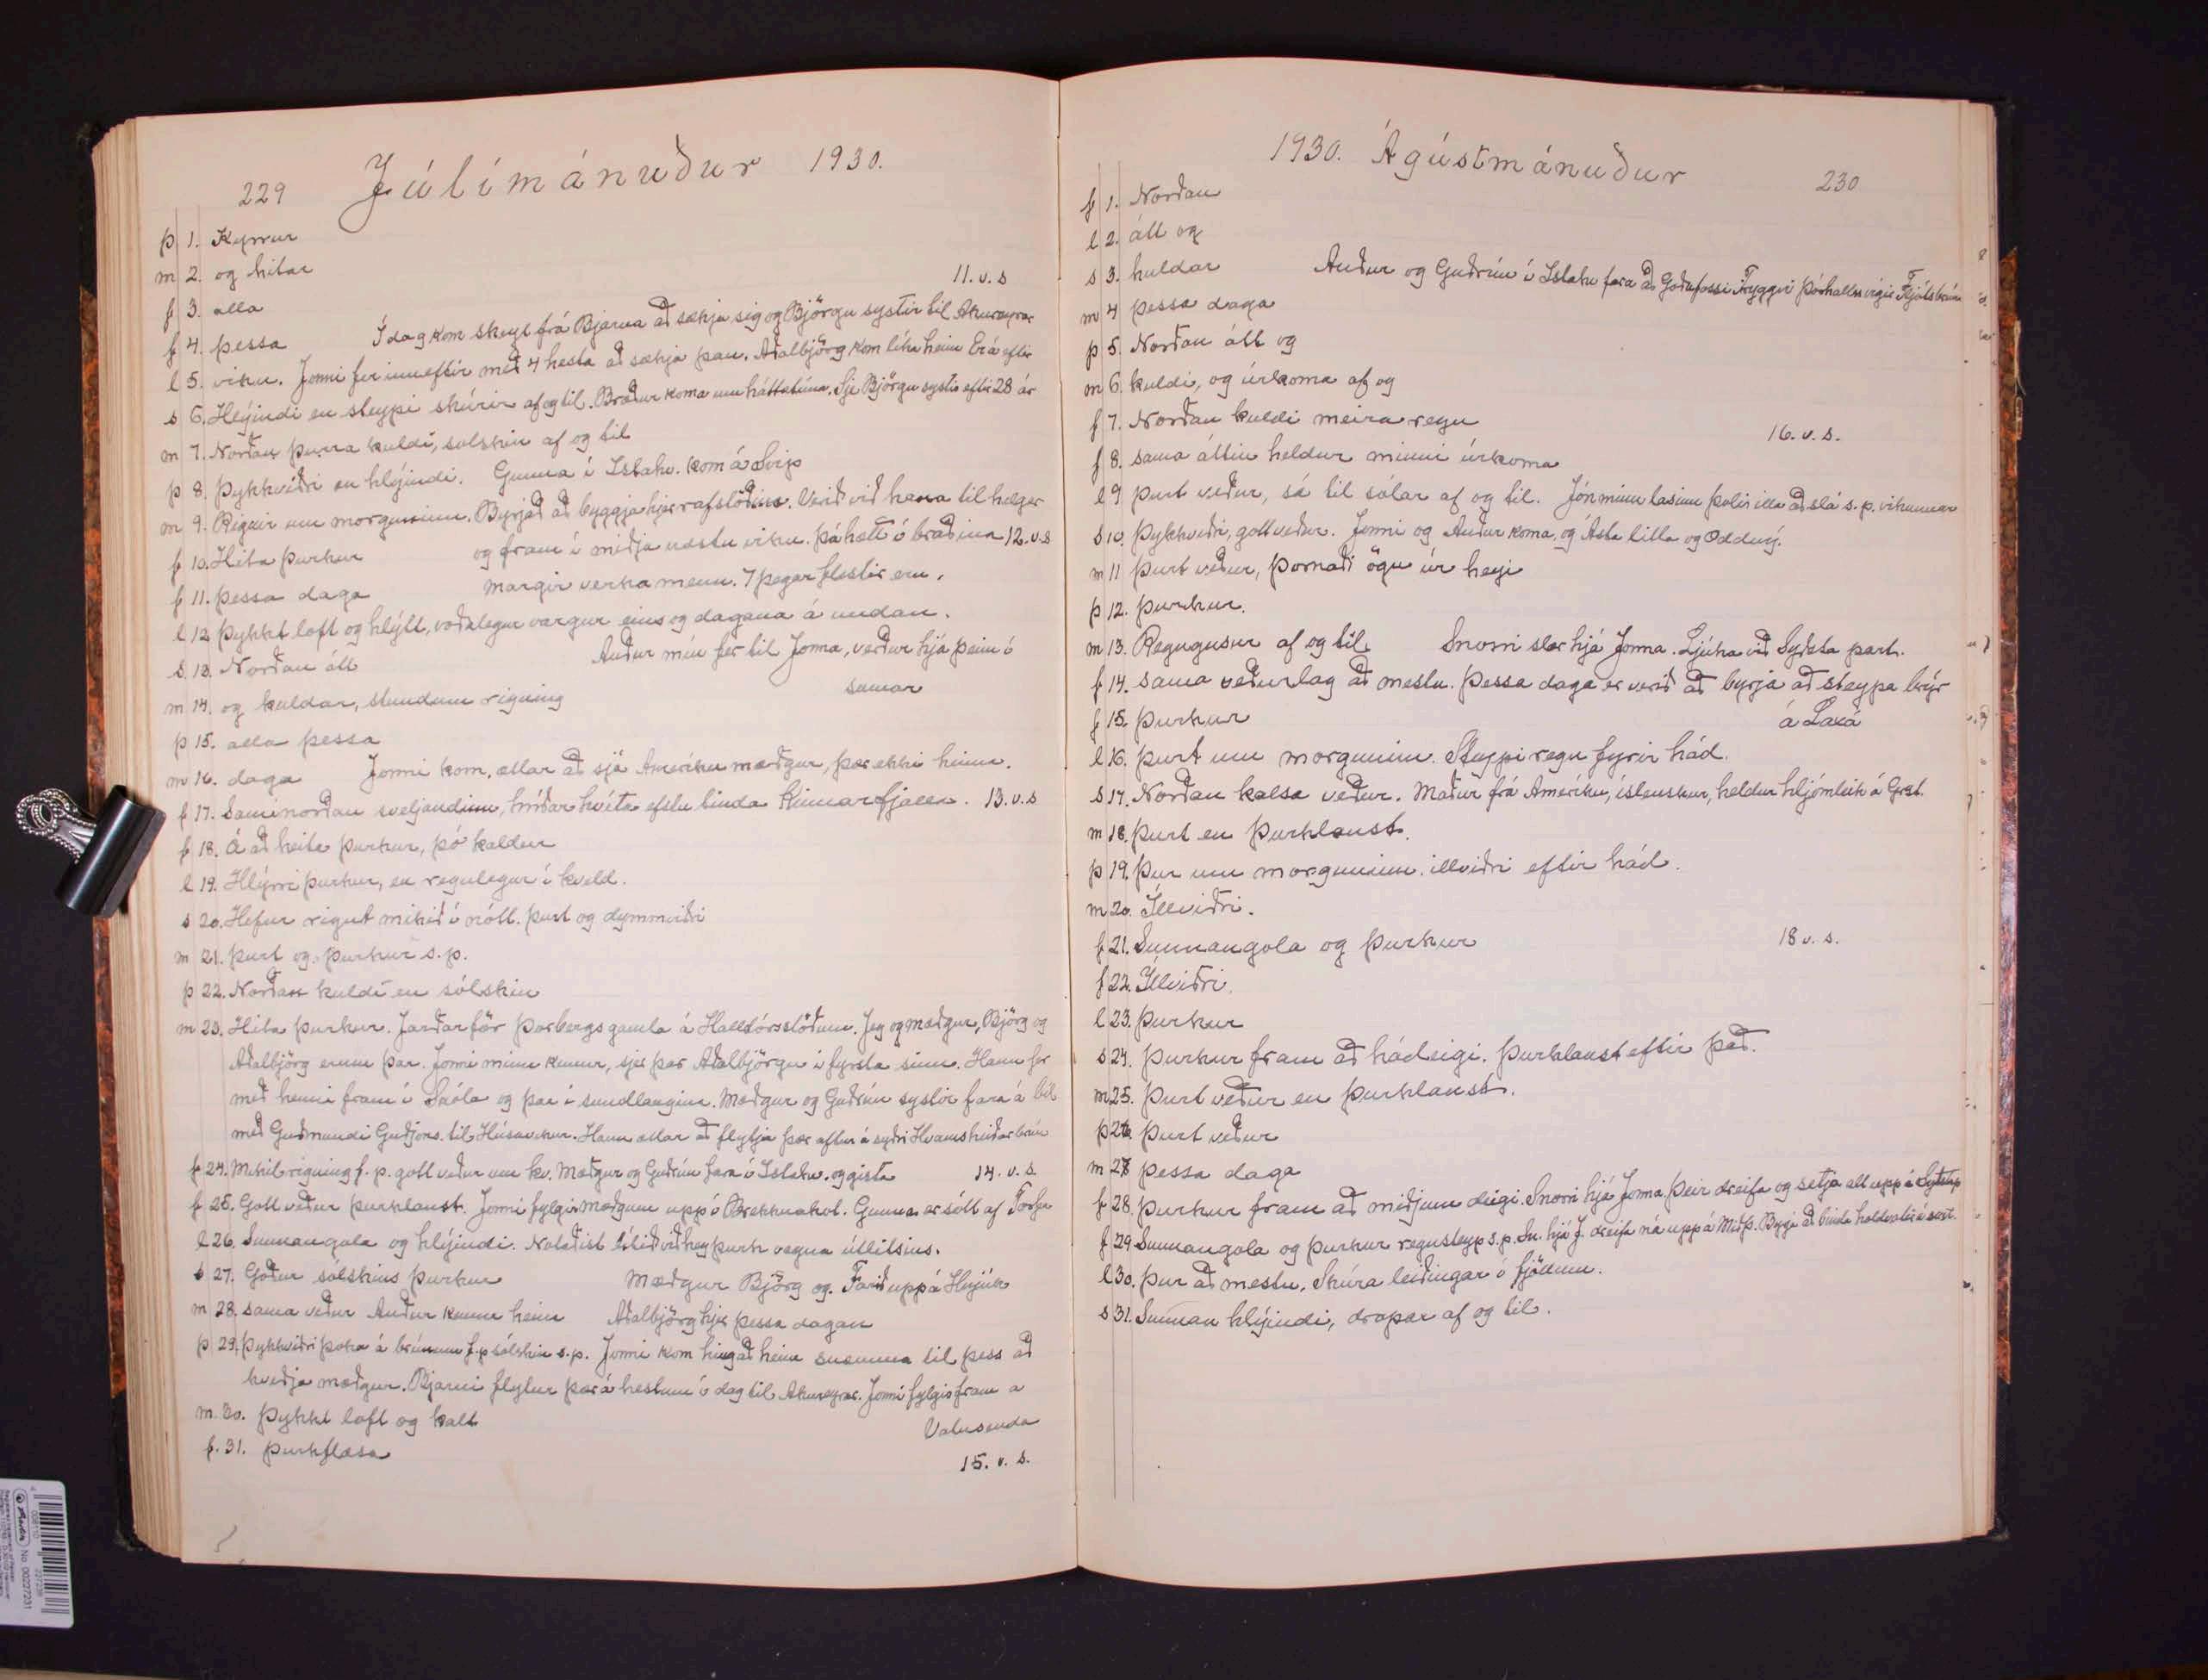 229 Júlímánuður 1930.
þ 1. Kyrrur
m 2. og hitar
11. v. s
f 3. alla
f 4. þessa Í dag kom skeyt frá Bjarna að sækja sig og Björgu systir til Akureyrar
l 5. viku. Jonni fer inneftir með 4 hesta að sækja þau. Aðalbjörg kom líka heim Erá eftir
s 6. Hlýindi en steypi skúrir af og til. Bræður koma um háttatíma. Sje Björgu systir eftir 28 ár
m 7. Norðan þurra kuldi, solskin af og til
þ 8. Þykkviðri en hlýindi. Gunna í Istakv. kom á Svip
m 9. Rignir um morguninn. Byrjað að byggja hjer rafstöðina. Verið við hana til helgar
f 10. Hita þurkur og fram í miðja næstu viku. Þá hætt í bráðina 12. v. s
f 11. þessa daga margir verkamenn. 7 þegar flestir eru.
l 12. Þykkt loft og hlýtt, voðalegur vargur eins og dagana á undan.
s. 13. Norðan átt Auður mín fer til Jonna, verður hjá þeim í
m 14. og kuldar, stundum rigning sumar
þ 15. alla þessa
m 16. daga Jonni kom, ætlar að sjá Ameríku mæðgur, þær ekki heima.
f 17. Sami norðan sveljandinn, hríðar hvíta efstu tinda Kinnarfjalla. 13. v. s
f 18. Á að heita þurkur, þó kaldur
l 19. Hlýrri þurkur, en regnlegur í kveld.
s 20. Hefur rignt mikið í nótt. þurt og dymmviðri
m 21. þurt og þurkur s. p.
þ 22. Norðan kuldi en sólskin
m 23. Hita þurkur. Jarðarför Þorbergs gamla á Halldórsstöðum. Jeg og mæðgur, Björg og
Aðalbjörg erum þar. Jonni minn kemur, sjer þar Aðalbjörgu í fyrsta sinn. Hann fer
með henni fram í Skóla og þau í sundlaugina. Mæðgur og Guðrún systir fara á bíl
með Guðmundi Guðjóns. til Húsavíkur. Hann ætlar að flytja þær aftur á syðri Hvamsheiðarbrún
f 24. Mikil rigning f. p. gott veður um kv. Mæðgur og Guðrún fara í Istakv. og gista 14. v. s.
f 25. Gott veður þurklaust. Jonni fylgir mæðgum upp í Brekknakot. Gunna er sótt af Torfu
l 26. Sunnangola og hlýindi. Notaðist lítið við heyþurk vegna útlitsins.
s 27. Góður sólskins þurkur Mæðgur Björg og Farið uppá Hnjúk
m 28. sama veður Auður kemur heim Aðalbjörg hjer þessa dagan
þ 29. Þykkviðri þoka á brúnum f. p sólskin s. p. Jonni kom hingað heim snemma til þess að
kveðja mæðgur. Bjarni flytur þær á hestum í dag til Akureyrar. Jonni fylgir fram a
m. 30. Þykkt loft og kalt Valnsenda
f. 31. þurkflæsa
15. v. s.
1930. Ágústmánuður 230
f 1. Norðan
l 2. átt og
s 3. kuldar Auður og Guðrún í Istakv fara að Goðafossi Tryggvi Þórhallss vígir Fljótsbrúna
m 4 þessa daga
þ 5. Norðan átt og
m 6. kuldi, og úrkoma af og
f 7. Norðan kuldi meira regn
16. v. s.
f 8. sama áttin heldur minni úrkoma
l 9 þurt veður, sá til sólar af og til. Jón minn lasinn þolir illa að slá s. p. vikunnar
s 10. Þykkviðri, gott veður. Jonni og Auður koma, og Ásta litla og Oddný.
m 11 þurt veður, þornaði ögn úr heyi
þ 12. þurkur.
m 13. Regngusur af og til. Snorri slær hjá Jonna. Ljúka við Syðsta part.
f 14. sama veðurlag að mestu. Þessa daga er verið að byrja að steypa brýr
f 15. þurkur á Laxá
l 16. þurt um morguninn. Steypi regn fyrir hád.
s 17. Norðan kalsa veður. Maður frá Ameríku, íslenskur, heldur hljómleik á Grst.
m 18. þurt en þurklaust.
þ 19. þur um morguninn. illviðri eftir hád.
m 20. Illviðri.
f 21. Sunnangola og þurkur 18 v. s.
f 22. Illviðri.
l 23. þurkur
s 24. þurkur fram að hádeigi. þurklaust eftir það.
m 25. þurt veður en þurklaust.
þ 26 þurt veður
m 27 þessa daga
f 28. þurkur fram að miðjum deigi. Snorri hjá Jonna. Þeir dreifa og setja alt upp á
f 29 Sunnangola og þurkur regnsteyp s. p. Sn. hjá J. dreifa ná upp á Miðp. Byrja að binda
l 30. þur að mestu. Skúra leiðingar í fjöllum.
s 31. Sunnan hlýindi, dropar af og til.